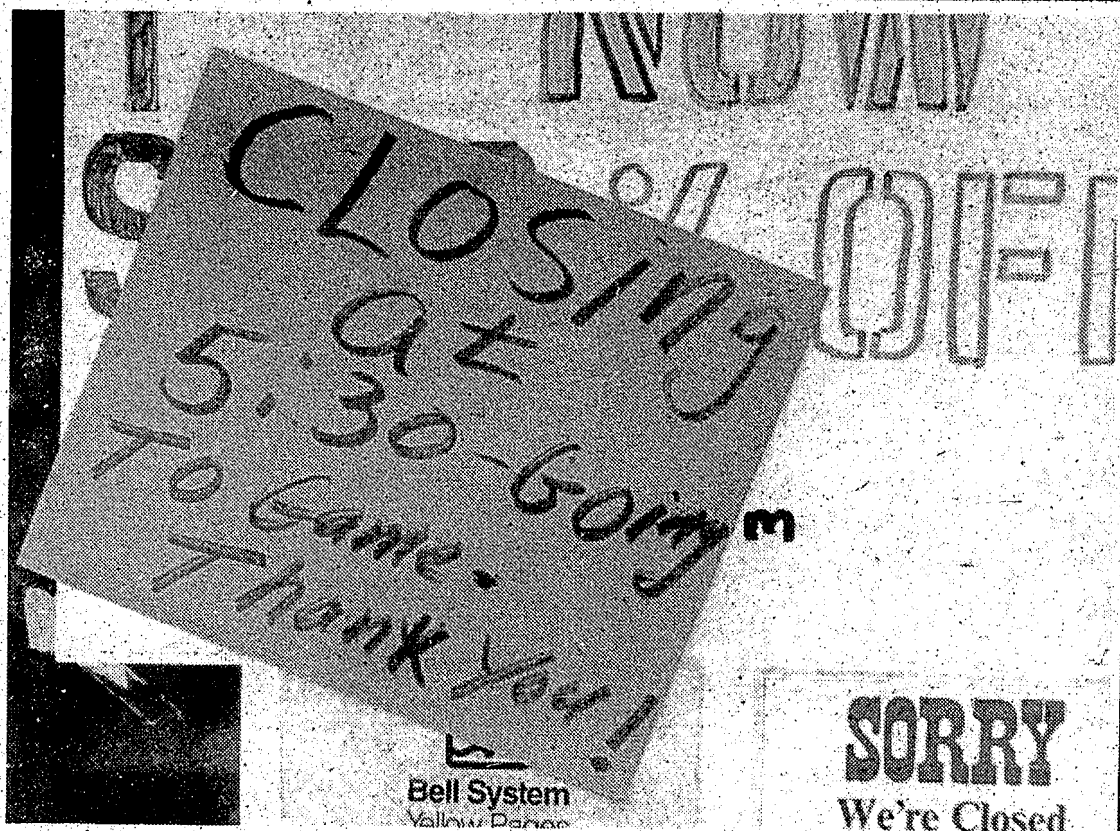 NOW
% OFF
CLOSiNg
at
5:30-GOing
To Game.
Thank You!
Bell System
Yellow Pages
SORRY
We're Closed